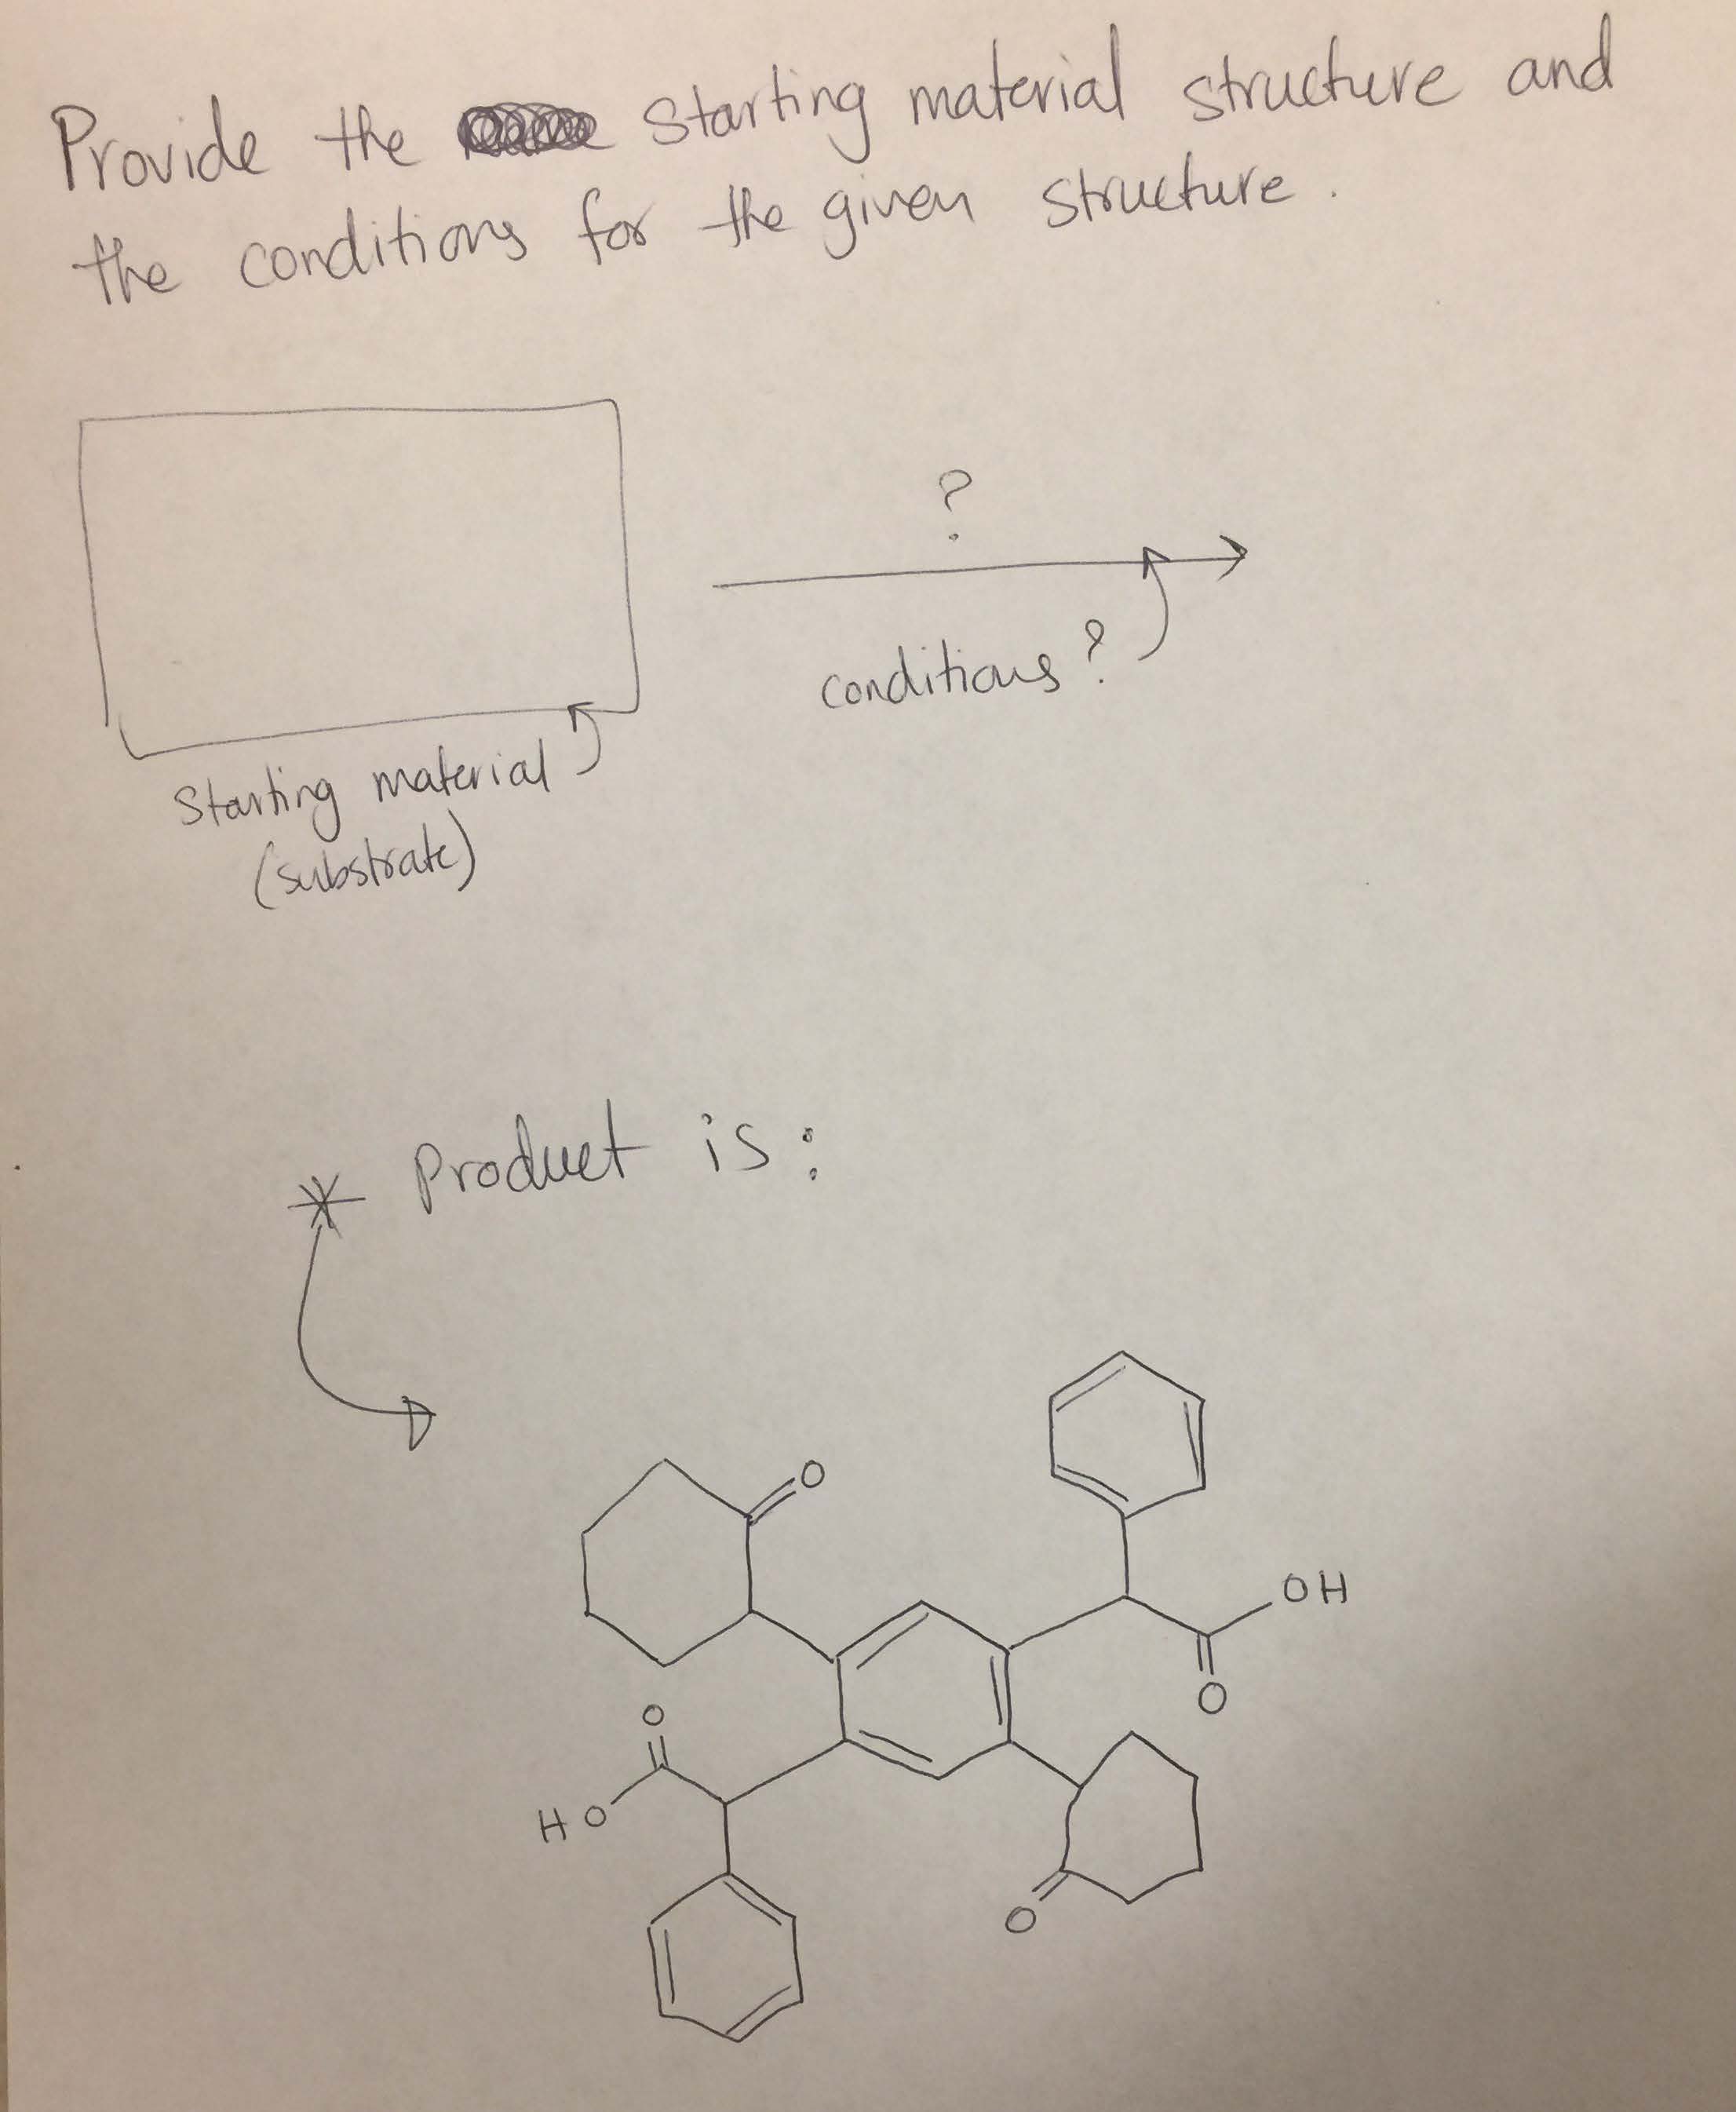 Provide the starting material structure and
the conditions for the given structure.
?
conditions?
Starting material
(substrate)
* Product is:
O
OH
O
O
HO
O